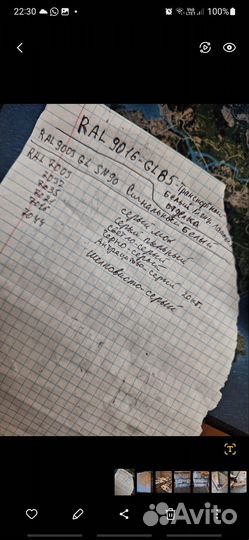 22:30
100%
RAL 9016-GL85-Транспортный
белый
отделка
RAL9003 GL SN90 Сигнальный белый
RAL 7005 серый мой
7032 серый пыльный
7035 светло-серый
7021 черно-серый
7016 Антрацитово-серый
7044 Шелковисто-серый
Avito